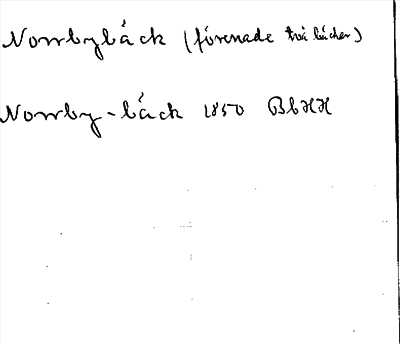 Norrbybäck (förenade två bäcker)
Norrby-bäck 1850 BbHH